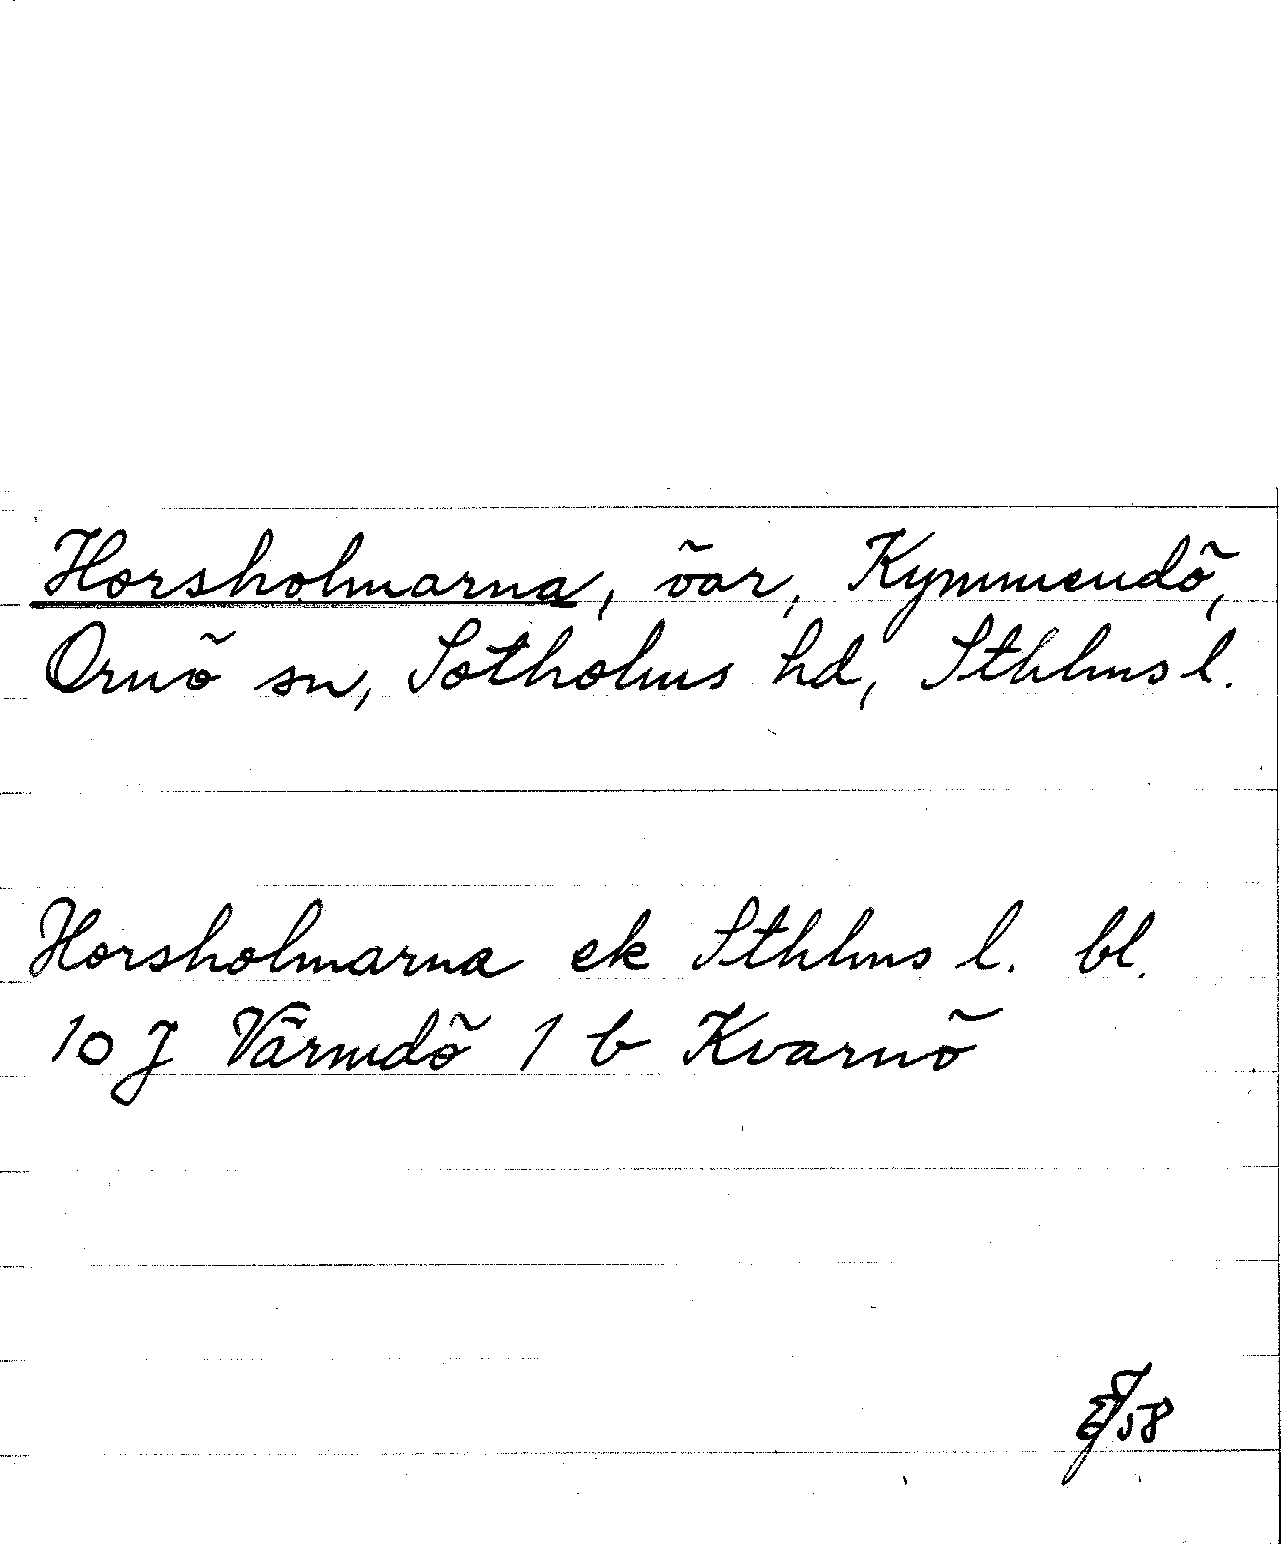 Horsholmarna, öar, Kymmendö,
Ornö sn, Sotholms hd, Sthlms l.
Horsholmarna ek Sthlms l. bl.
10 J Värmdö 1 b Kvarnö
58